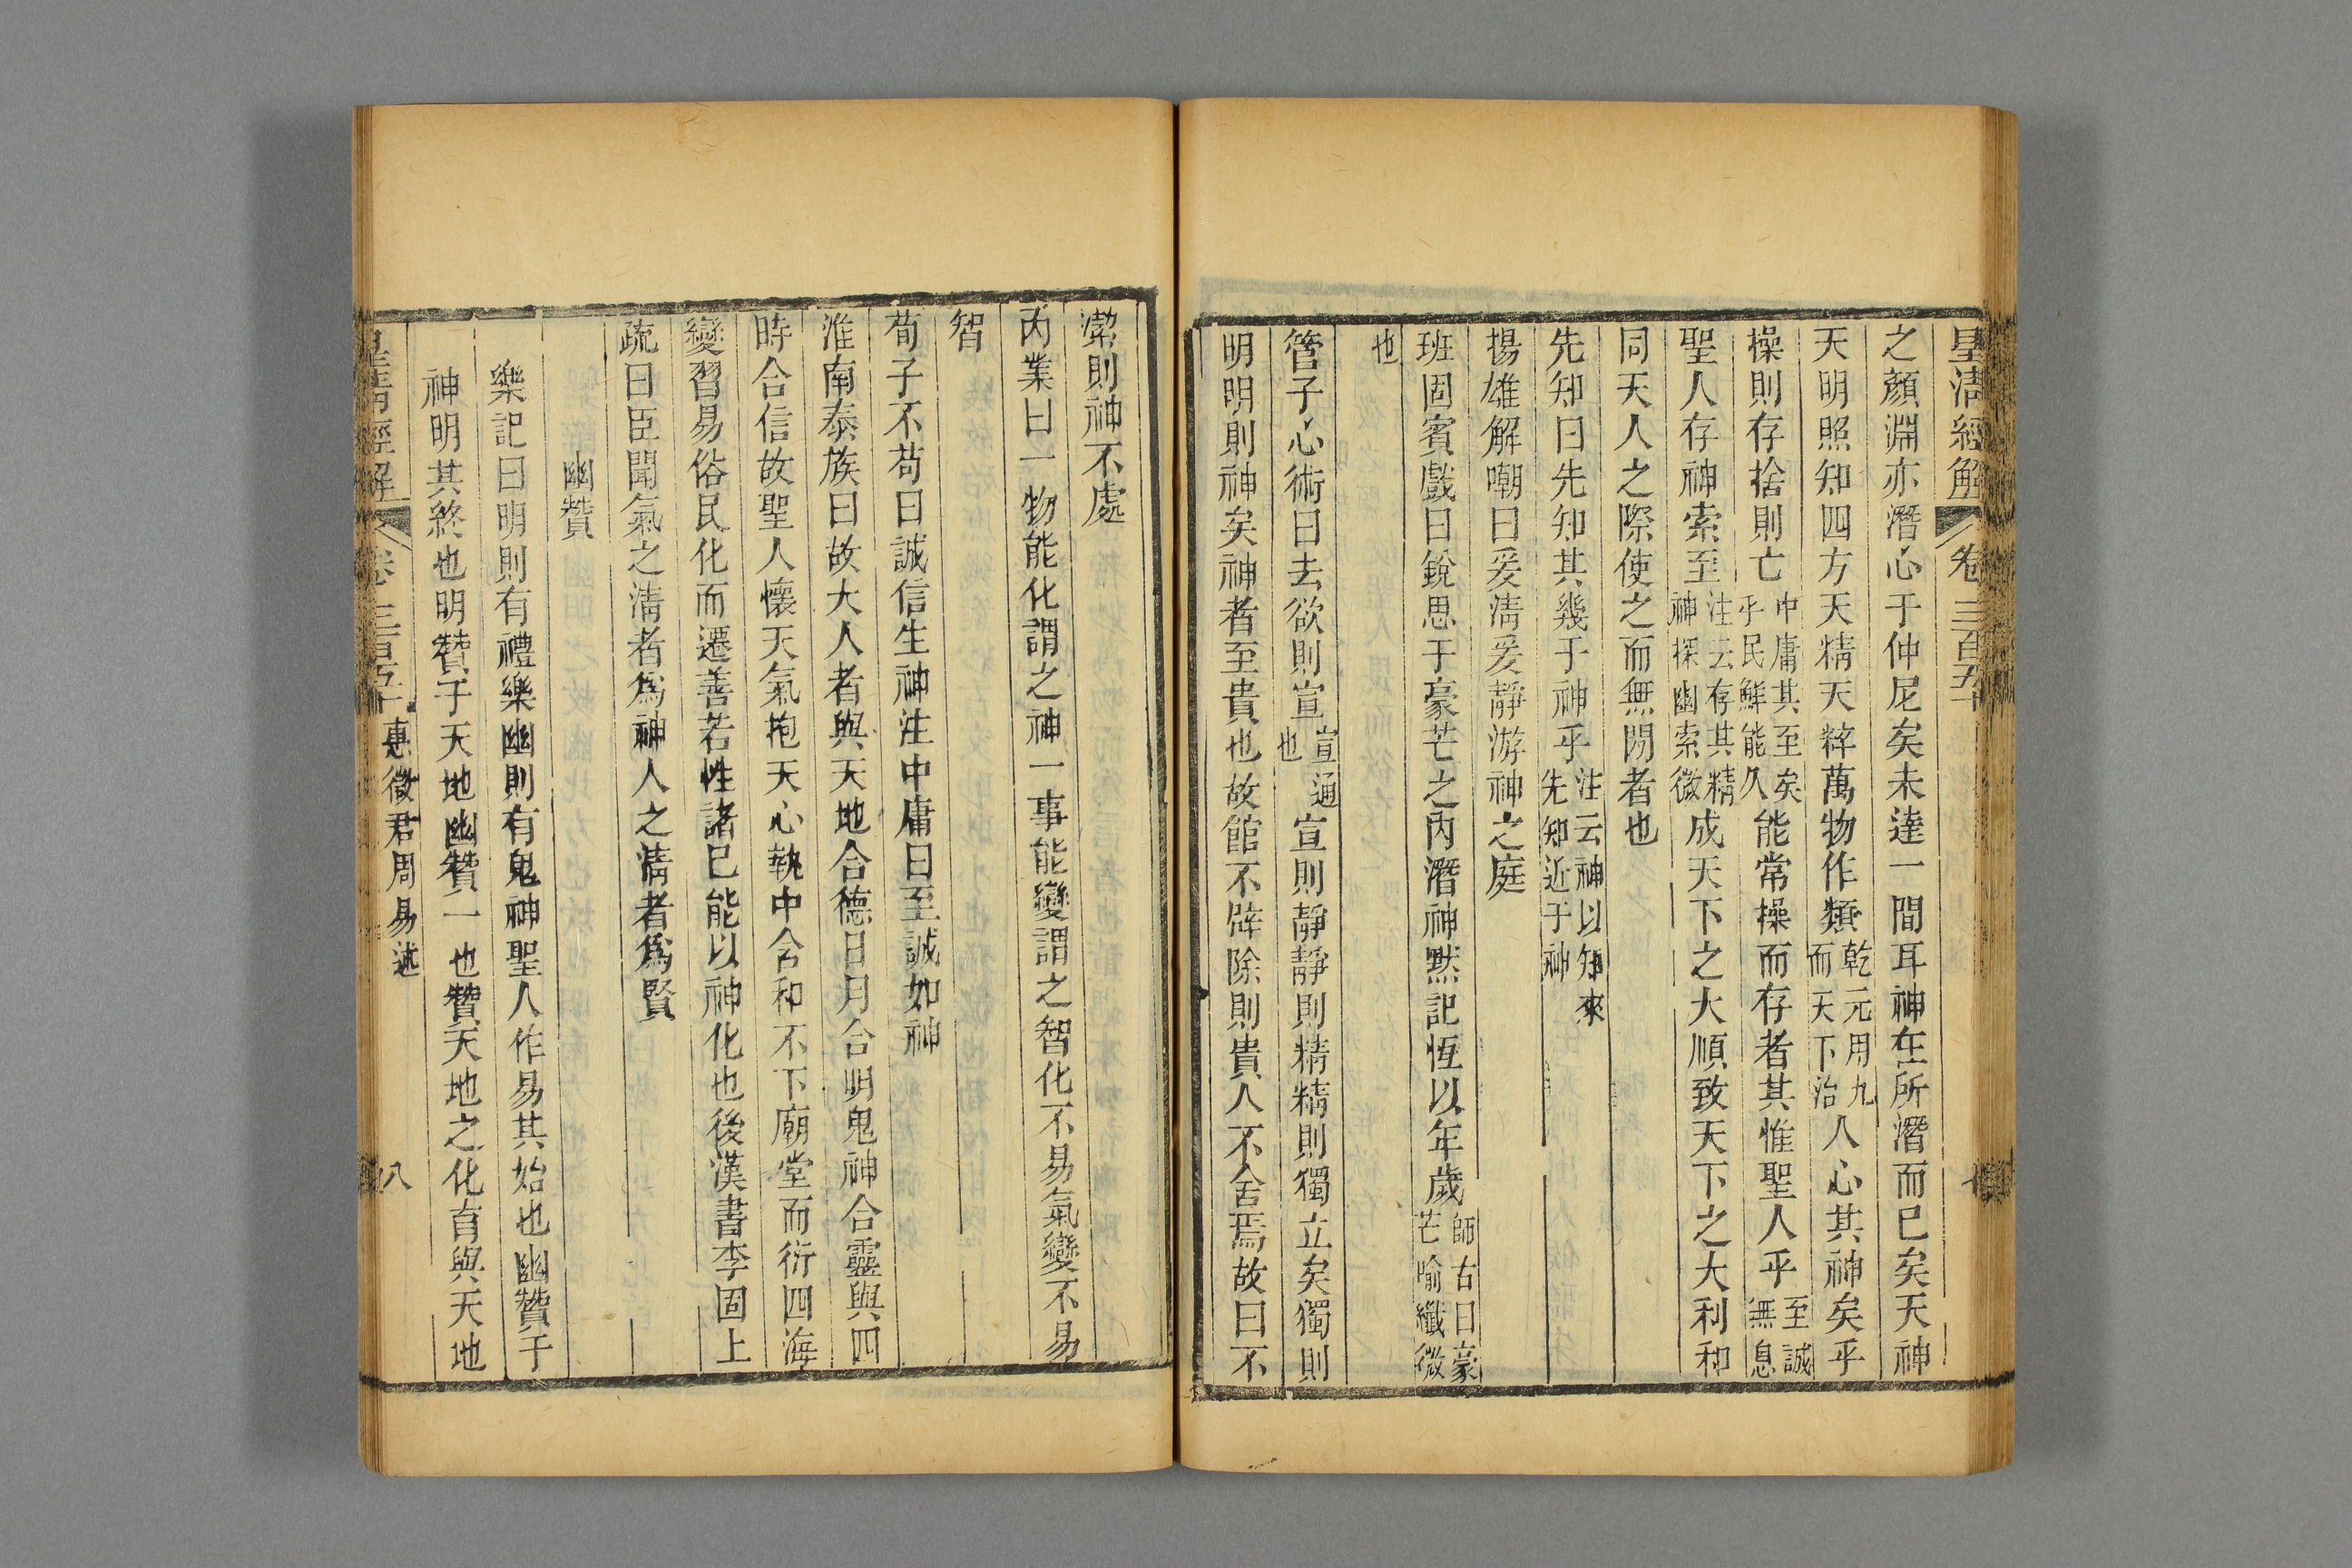 皇清經解 卷三百五十
之顏淵亦潛心于仲尼矣未達一間耳神在所潛而已矣天神
天明照知四方天精天粹萬物作類乾元用九而天下治人心其神矣乎
操則存捨則亡中庸其至矣乎民鮮能久能常操而存者其惟聖人乎至誠無息
聖人存神索至注云存其精神探幽索微成天下之大順致天下之大利和
同天人之際使之而無閒者也
先知曰先知其幾于神乎注云神以知來先知近于神
揚雄解嘲曰爰淸爰靜游神之庭
班固賓戲曰銳思于豪芒之內潛神默記恆以年歲師古曰豪芒喻纖微
也
管子心術曰去欲則宣宣通也宣則靜靜則精精則獨立矣獨則
明明則神矣神者至貴也故館不辟除則貴人不舍焉故曰不
潔則神不處
內業曰一物能化謂之神一事能變謂之智化不易氣變不易
智
荀子不苟曰誠信生神注中庸曰至誠如神
淮南泰族曰故大人者與天地合德日月合明鬼神合靈與四
時合信故聖人懷天氣抱天心執中含和不下廟堂而衍四海
變習易俗民化而遷善若性諸己能以神化也後漢書李固上
疏曰臣聞氣之淸者爲神人之淸者爲賢
幽贊
樂記曰明則有禮樂幽則有鬼神聖人作易其始也幽贊于
神明其終也明贊于天地幽贊一也贊天地之化育與天地
皇清經解 卷三百五十 惠徵君周易述 八